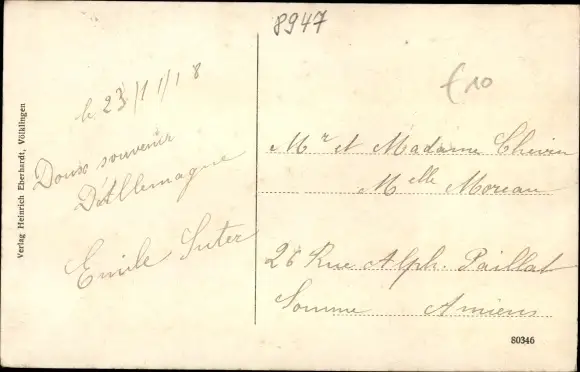 8947
£10
le 23/11/18
Doux souvenir
D'Allemagne
Emile Suter
Mr et Madame
Melle Moreau
26 Rue Alph. Paillat
Somme Amiens
Verlag Heinrich Eberhardt, Völklingen
80346